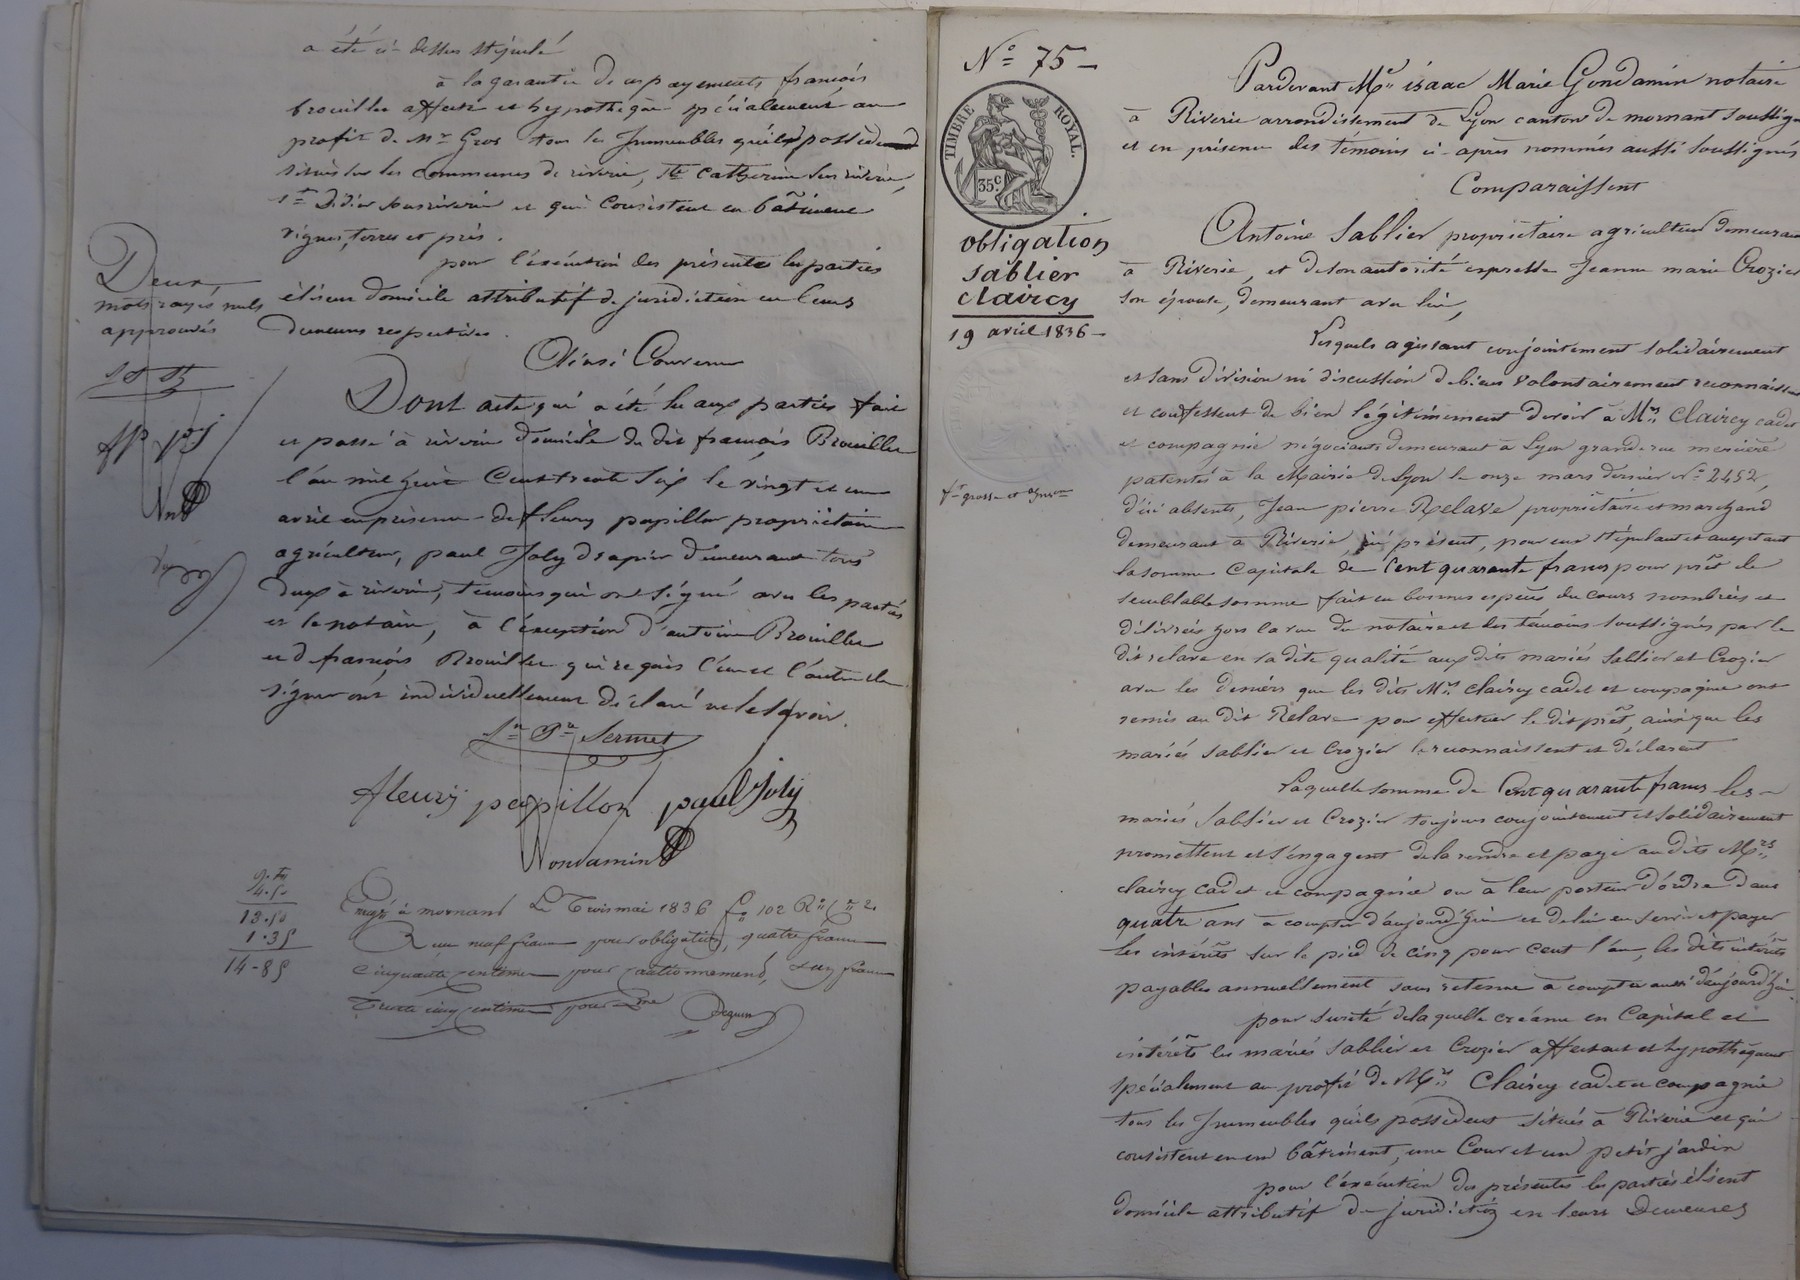 a été ci-dessus stipulé
à la garantie de ces payements françois
brouiller affecte et hypothèque spécialement au
profit de Mr Gros tous les Immeubles qu'il possède
situés sur les communes de riverie, Ste Catherine sur riverie,
St Didier sous riverie et qui Consistent en bâtiment
vignes, terres et près.
pour l'éxécution des présentes les parties
élisent domicile attributif de juridiction en leurs
demeures respectives.
Deux
mots rayés nuls
approuvés
Ainsi Convenu
Dont acte qui a été lu aux parties fait
et passé à riverie domicile du dit françois Brouiller
l'an mil huit Cent trente Six le vingt et un
avril en présence de fleury papillon propriétaire
agriculteur, paul Joly drapier demeurant tous
deux à riverie, témoins qui ont signé avec les parties
et le notaire, à l'éxception d'antoine Brouiller
et de françois Brouiller qui requis l'un et l'autre de
signer ont individuellement déclaré ne le savoir.
Sermet
fleury papillon paul Joly
Gondamin
4.50
13.50
1.35
14-85
Enregé à mornant Le Trois mai 1836 fo 102
Reçu neuf francs pour obligation, quatre francs
cinquante centimes pour cautionnement, un franc
Trente cinq centimes pour Dme
N° 75
TIMBRE ROYAL.
35 c
obligation
sablier
claircy
19 avril 1836
f. grosse et
Pardevant Me isaac Marie Gondamin notaire
à Riverie arrondissement de Lyon canton de mornant soussigné
et en présence des témoins ci-après nommés aussi soussignés
Comparaissent
Antoine Sablier propriétaire agriculteur demeurant
à Riverie, et de son autorité expresse Jeanne marie Crozier
son épouse, demeurant avec lui,
Lesquels agissant conjointement solidairement
et sans division ni discussion de biens volontairement reconnaissent
et confessent de bien légitimement devoir à Mrs Claircy cadet
et compagnie négociants demeurant à Lyon grande rue mercière
patentés à la Mairie de Lyon le onze mars dernier N° 2452,
d'ici absents, Jean pierre Relave propriétaire et marchand
demeurant à Riverie, ici présent, pour eux stipulant et acceptant
la somme Capitale de Cent quarante francs pour prêt de
semblable somme fait en bonnes espèces du cours nombrées et
délivrées hors la vue du notaire et des témoins soussignés par le
dit relave en sa dite qualité aux dits mariés Sablier et Crozier
avec les deniers que les dits Mrs Claircy cadet et compagnie ont
remis au dit Relave pour effectuer le dit prêt, ainsi que les
mariés Sablier et Crozier le reconnaissent et déclarent
Laquelle somme de Cent quarante francs les
mariés Sablier et Crozier toujours conjointement et solidairement
promettent et s'engagent de la rendre et payer au dits Mrs
claircy cadet et compagnie ou à leur porteur d'ordre dans
quatre ans à compter d'aujourd'hui et de lui en servir et payer
les intérêts sur le pied de cinq pour Cent l'an, les dits intérêts
payables annuellement sans retenue à compter aussi d'aujourd'hui.
pour sureté de laquelle créance en Capital et
intérêts les mariés Sablier et Crozier affectent et hypothèquent
spécialement au profit de Mrs Claircy cadet et compagnie
tous les Immeubles qu'ils possèdent situés à Riverie et qui
consistent en un bâtiment, une Cour et un petit jardin
pour l'éxécution des présentes les parties élisent
domicile attributif de juridiction en leurs Demeures